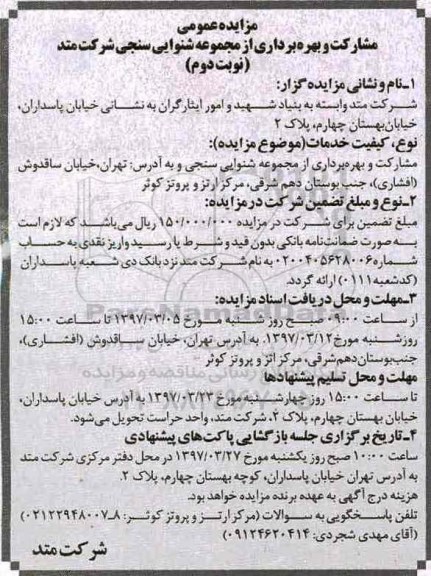 مزایده عمومی
مشارکت و بهره برداری از مجموعه شنوایی سنجی شرکت متد
(نوبت دوم)
۱ـ نام و نشانی مزایده گزار:
شرکت متد وابسته به بنیاد شهید و امور ایثارگران به نشانی خیابان پاسداران،
خیابان بهستان چهارم، پلاک ۲
نوع، کیفیت خدمات(موضوع مزایده):
مشارکت و بهره برداری از مجموعه شنوایی سنجی و به آدرس: تهران، خیابان ساقدوش
(افشاری)، جنب بوستان دهم شرقی، مرکز ارتز و پروتز کوثر
۲ـ نوع و مبلغ تضمین شرکت در مزایده:
مبلغ تضمین برای شرکت در مزایده ۱۵۰/۰۰۰/۰۰۰ ریال می باشد که لازم است
به صورت ضمانت نامه بانکی بدون قید و شرط یا رسید واریز نقدی به حساب
شماره ۰۲۰۰۴۰۵۶۲۸۰۰۶ به نام شرکت متد نزد بانک دی شعبه پاسداران
(کدشعبه ۰۱۱۱) ارائه گردد.
۳ـ مهلت و محل دریافت اسناد مزایده:
از ساعت ۰۹:۰۰ صبح روز شنبه مورخ ۱۳۹۷/۰۳/۰۵ تا ساعت ۱۵:۰۰
روز شنبه مورخ ۱۳۹۷/۰۳/۱۲. به آدرس تهران، خیابان ساقدوش (افشاری)،
جنب بوستان دهم شرقی، مرکز اتز و پروتز کوثر
مهلت و محل تسلیم پیشنهادها
تا ساعت ۱۵:۰۰ روز چهارشنبه مورخ ۱۳۹۷/۰۳/۲۳ به آدرس خیابان پاسداران،
خیابان بهستان چهارم، پلاک ۲، شرکت متد، واحد حراست تحویل می شود.
۴ـ تاریخ برگزاری جلسه بازگشایی پاکت های پیشنهادی
ساعت ۱۰:۰۰ صبح روز یکشنبه مورخ ۱۳۹۷/۰۳/۲۷ در محل دفتر مرکزی شرکت متد
به آدرس تهران خیابان پاسداران، کوچه بهستان چهارم، پلاک ۲.
هزینه درج آگهی به عهده برنده مزایده خواهد بود.
تلفن پاسخگویی به سوالات (مرکز ارتز و پروتز کوثر: ۸ـ۰۲۱۲۲۹۴۸۰۰۷)
(آقای مهدی شجردی: ۰۹۱۲۴۶۲۰۴۱۴)
شرکت متد